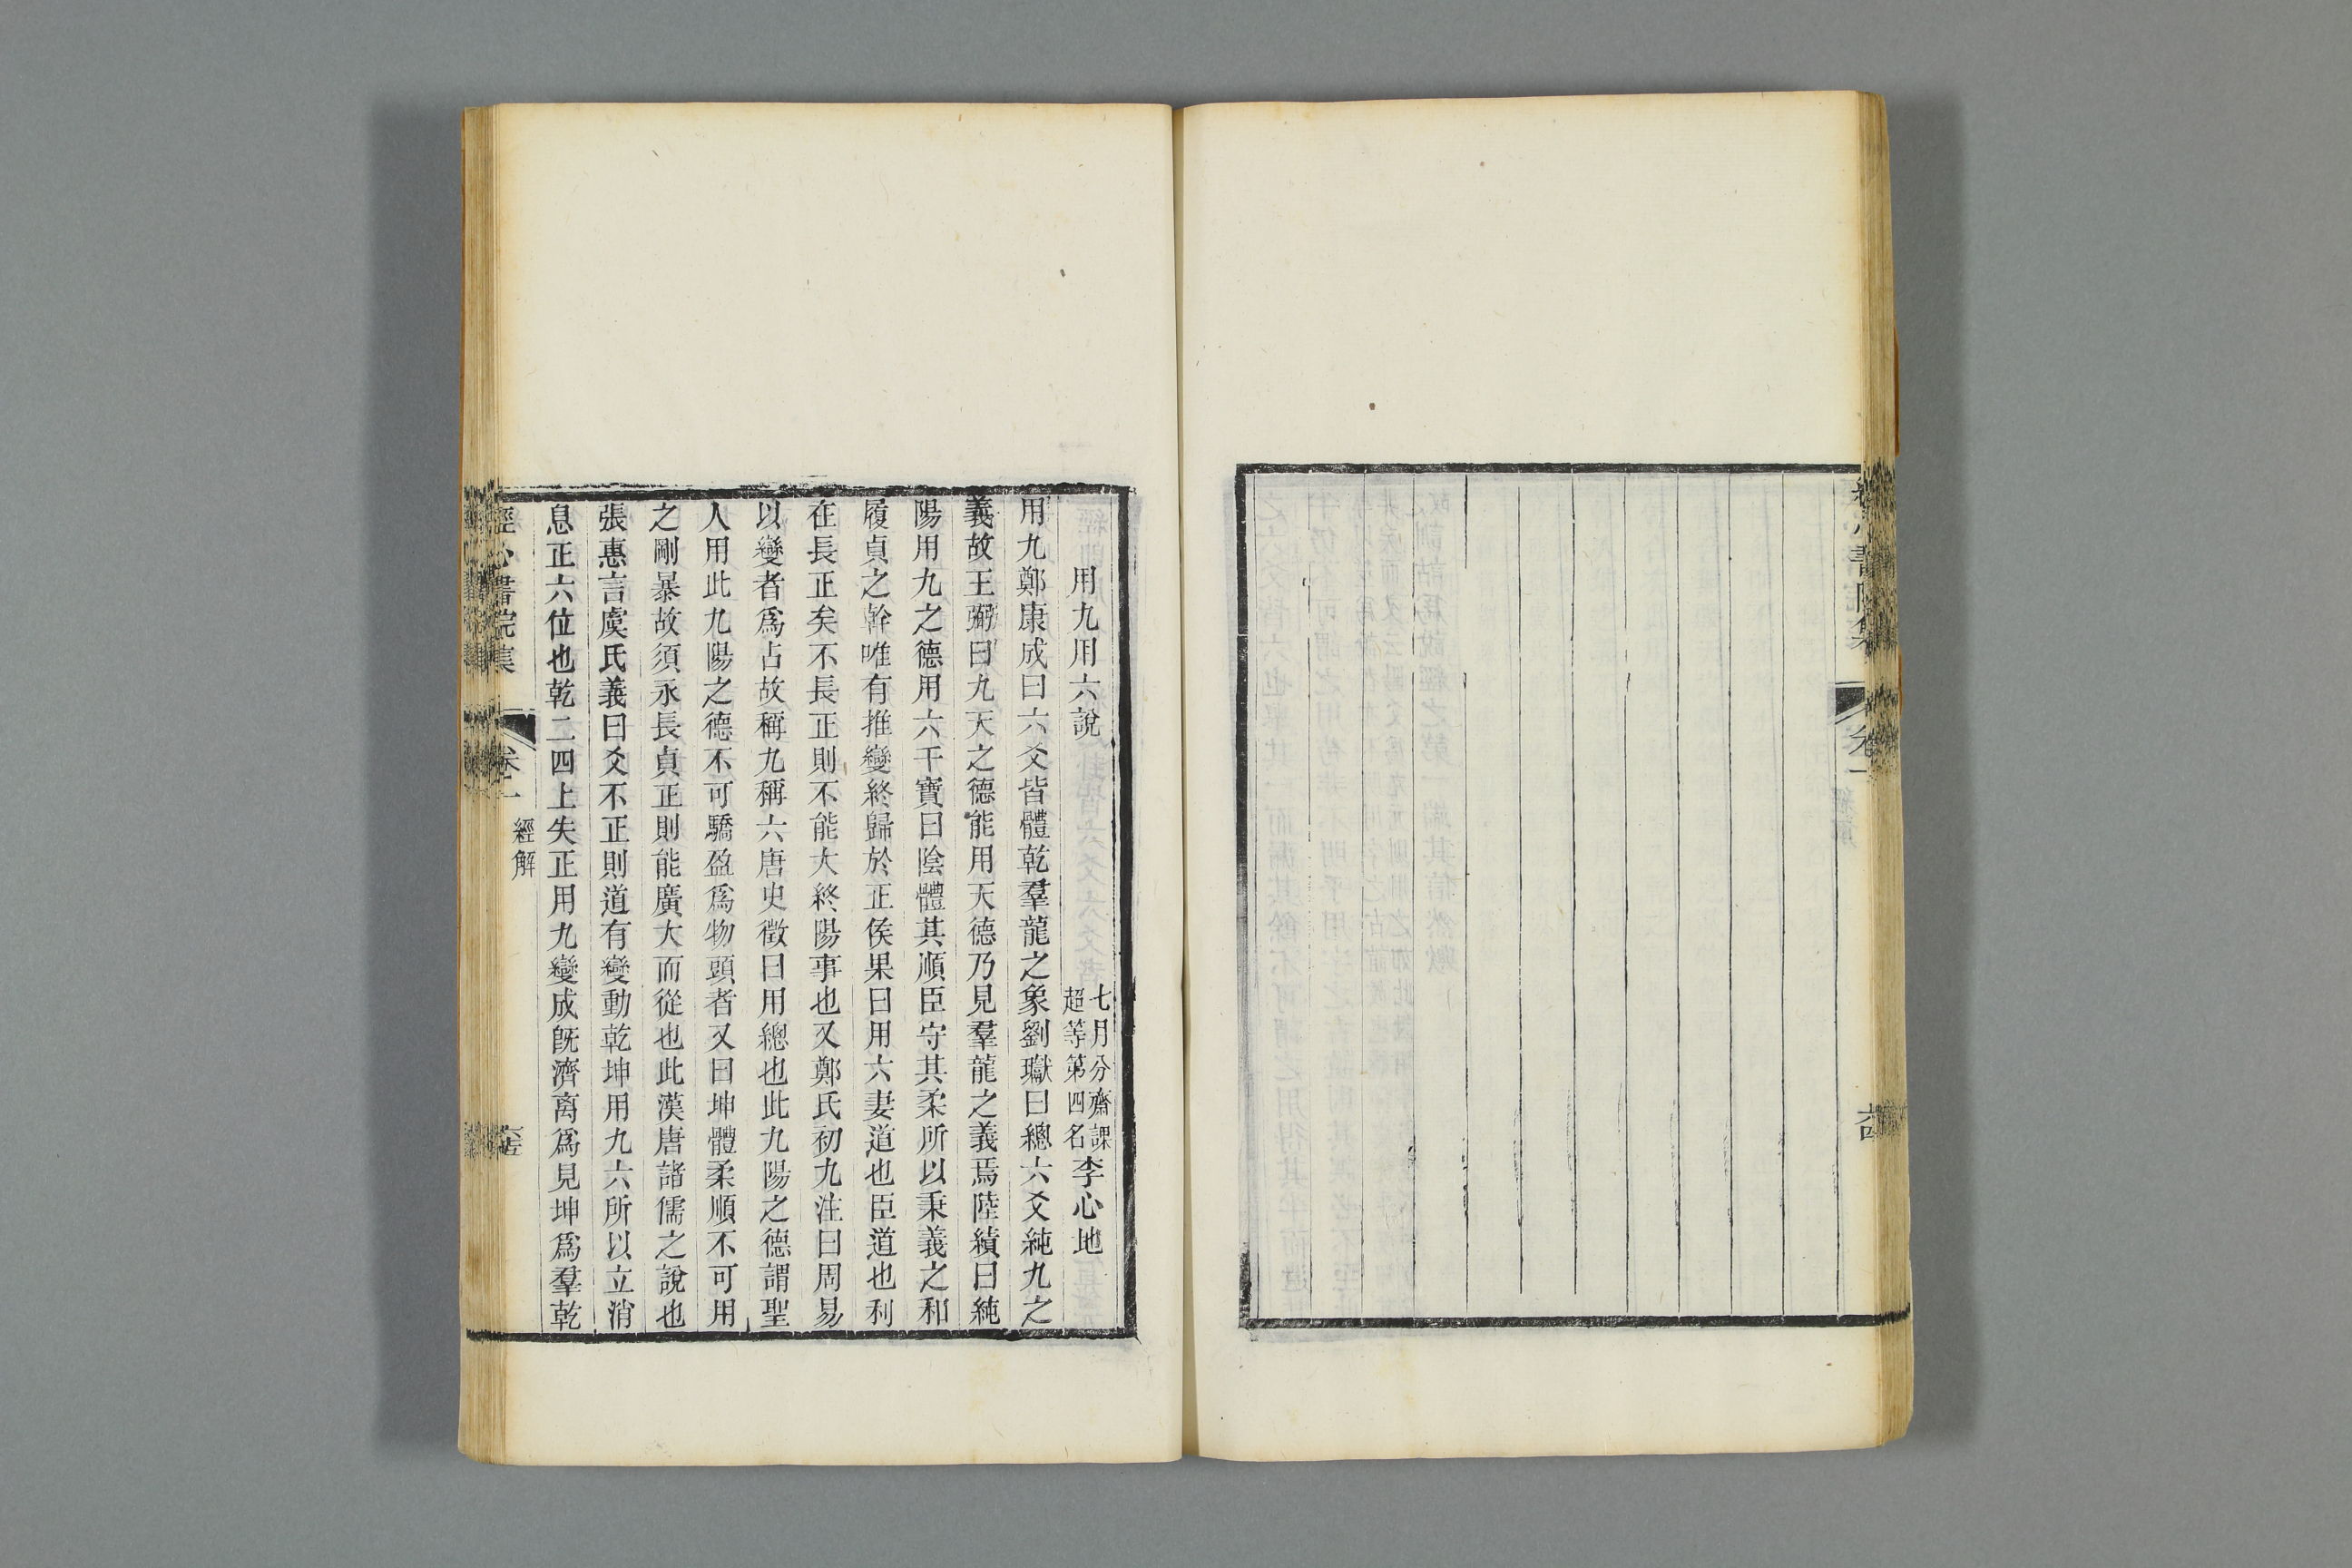 用九用六說
七月分齋課
超等第四名
李心地
用九鄭康成曰六爻皆體乾羣龍之象劉瓛曰總六爻純九之
義故王弼曰九天之德能用天德乃見羣龍之義焉陸績曰純
陽用九之德用六干寶曰陰體其順臣守其柔所以秉義之和
履貞之幹唯有推變終歸於正侯果曰用六妻道也臣道也利
在長正矣不長正則不能大終陽事也又鄭氏初九注曰周易
以變者爲占故稱九稱六唐史徵曰用總也此九陽之德謂聖
人用此九陽之德不可驕盈爲物頭者又曰坤體柔順不可用
之剛暴故須永長貞正則能廣大而從也此漢唐諸儒之說也
張惠言虞氏義曰爻不正則道有變動乾坤用九六所以立消
息正六位也乾二四上失正用九變成旣濟离爲見坤爲羣乾
經心書院集
卷一
經解